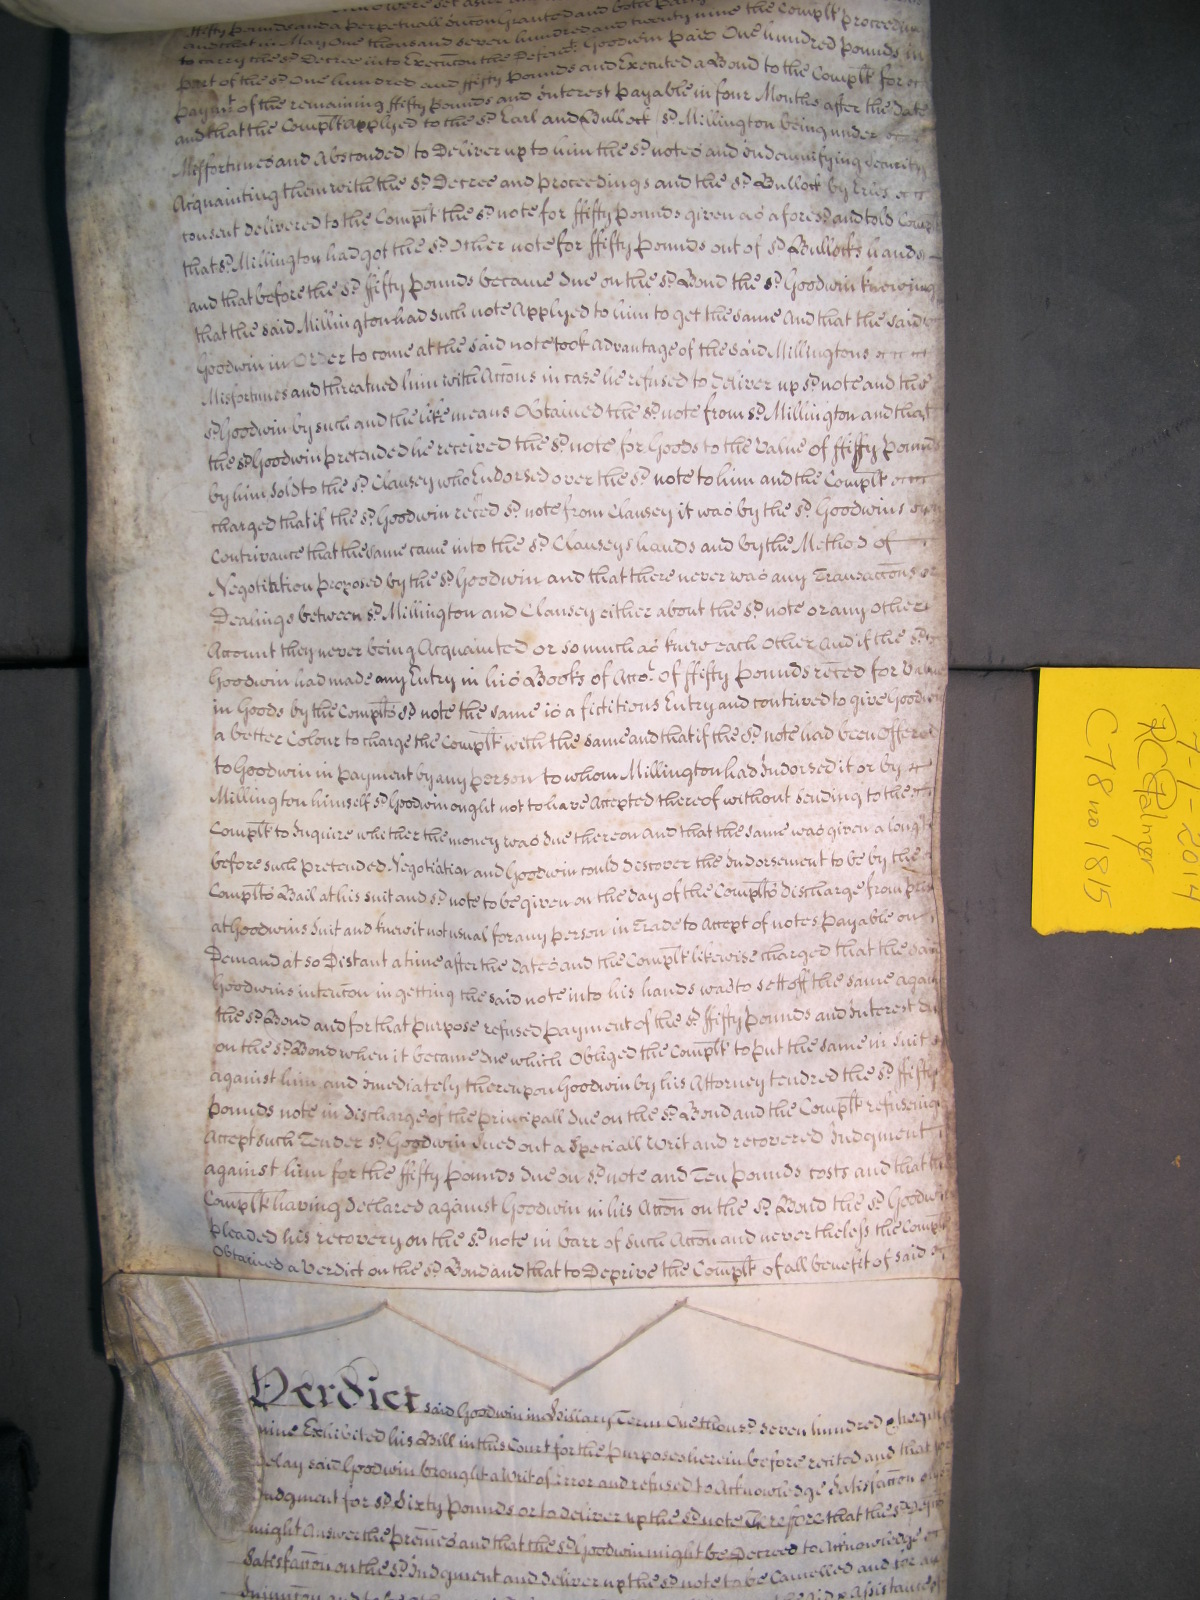 ffifty pounds and a perpetuall Inicton Granted and both
and that in May One thousand seven hundred and twenty nine the Complt proceeding
to carry the sd. Decree into Execucon the Defendt. Goodwin paid One hundred pounds in
part of the sd. One hundred and ffifty pounds and Executed a Bond to the Complt for
paymt. of the remaining ffifty pounds and Interest payable in four Months after the Date
and that the Complt Applyed to the sd. Earl and Bullock (sd. Millington being under
Misfortunes and Absconded) to Deliver up to him the sd. notes and Indemnifying security
Acquainting them with the sd. Decree and proceedings and the sd. Bullock by Eries
consent delivered to the Complt the sd. note for ffifty pounds given as aforesd. and told Complt
that sd. Millington had got the sd. Other note for ffifty pounds out of sd. Bullocks hands
and that before the sd. ffifty pounds became due on the sd. Bond the sd. Goodwin knowing
that the said Millington had such note Applyed to him to get the same And that the said
Goodwin in Order to come at the said note took Advantage of the said Millingtons
Misfortunes and threatned him with Accons in case he refused to Deliver up sd. note and the
sd. Goodwin by such and the like means Obtained the sd. note from sd. Millington and that
the sd. Goodwin pretended he received the sd. note for Goods to the Value of ffifty pounds
by him sold to the sd. Clausey who Endorsed over the sd. note to him and the Complt
charged that if the sd. Goodwin reced sd. note from Clausey it was by the sd. Goodwins own
Contrivance that the same came into the sd. Clauseys hands and by the Method of
Negotiation proposed by the sd. Goodwin and that there never was any Transaccons or
Dealings between sd. Millington and Clausey either about the sd. note or any other
Account they never being Acquainted or so much as knew each Other And if the sd.
Goodwin had made any Entry in his Books of Acco. of ffifty pounds reced for Value
in Goods by the Complts sd. note the same is a fictitious Entry and contrived to give Goodwin
a better Colour to charge the Complt with the same and that if the sd. note had been Offered
to Goodwin in payment by any person to whom Millington had Indorsed it or by
Millington himself sd. Goodwin ought not to have Accepted thereof without sending to the
Complt to Inquire whether the money was due thereon and that the same was given a long
before such pretended Negotiation and Goodwin could discover the Indorsement to be by the
Complts Bail at his suit and sd. note to be given on the day of the Complts discharge from
at Goodwins Suit and knew it not usual for any person in Trade to Accept of notes payable on
Demand at so Distant a time after the dates and the Complt likewise charged that the said
Goodwins intencon in getting the said note into his hands was to sett off the same against
the sd. Bond and for that purpose refused payment of the sd. ffifty pounds and Interest due
on the sd. Bond when it became due which Obliged the Complt to put the same in suit
against him and Imediately thereupon Goodwin by his Attorney tendred the sd. ffifty
pounds note in discharge of the principall due on the sd. Bond and the Complt refuseing
Accept such Tender sd. Goodwin sued out a Speciall Writ and recovered Judgment
against him for the ffifty pounds due on sd. note and Ten pounds costs and that
Complt having declared against Goodwin in his Accon on the sd. Bond the sd. Goodwin
pleaded his recovery on the sd. note in barr of such Accon and nevertheless the Complt
Obtained a Verdict on the sd. Bond and that to Deprive the Complt of all benefit of said
Verdict said Goodwin in Hillary Term One thousd. seven hundred
nine Exhibited his Bill in this Court for the purposes herein before recited and that
delay said Goodwin brought a Writ of Error and refused to Acknowledge Satisfaccon
Judgment for sd. Sixty pounds or to deliver up the sd. note Therefore that the sd.
might Answer the Premes and that the sd. Goodwin might be Decreed to Acknowledge
Satisfaccon on the sd. Judgment and deliver up the sd. note to be Cancelled and for an
7-1-2014
RC Palmer
C78 no 1815